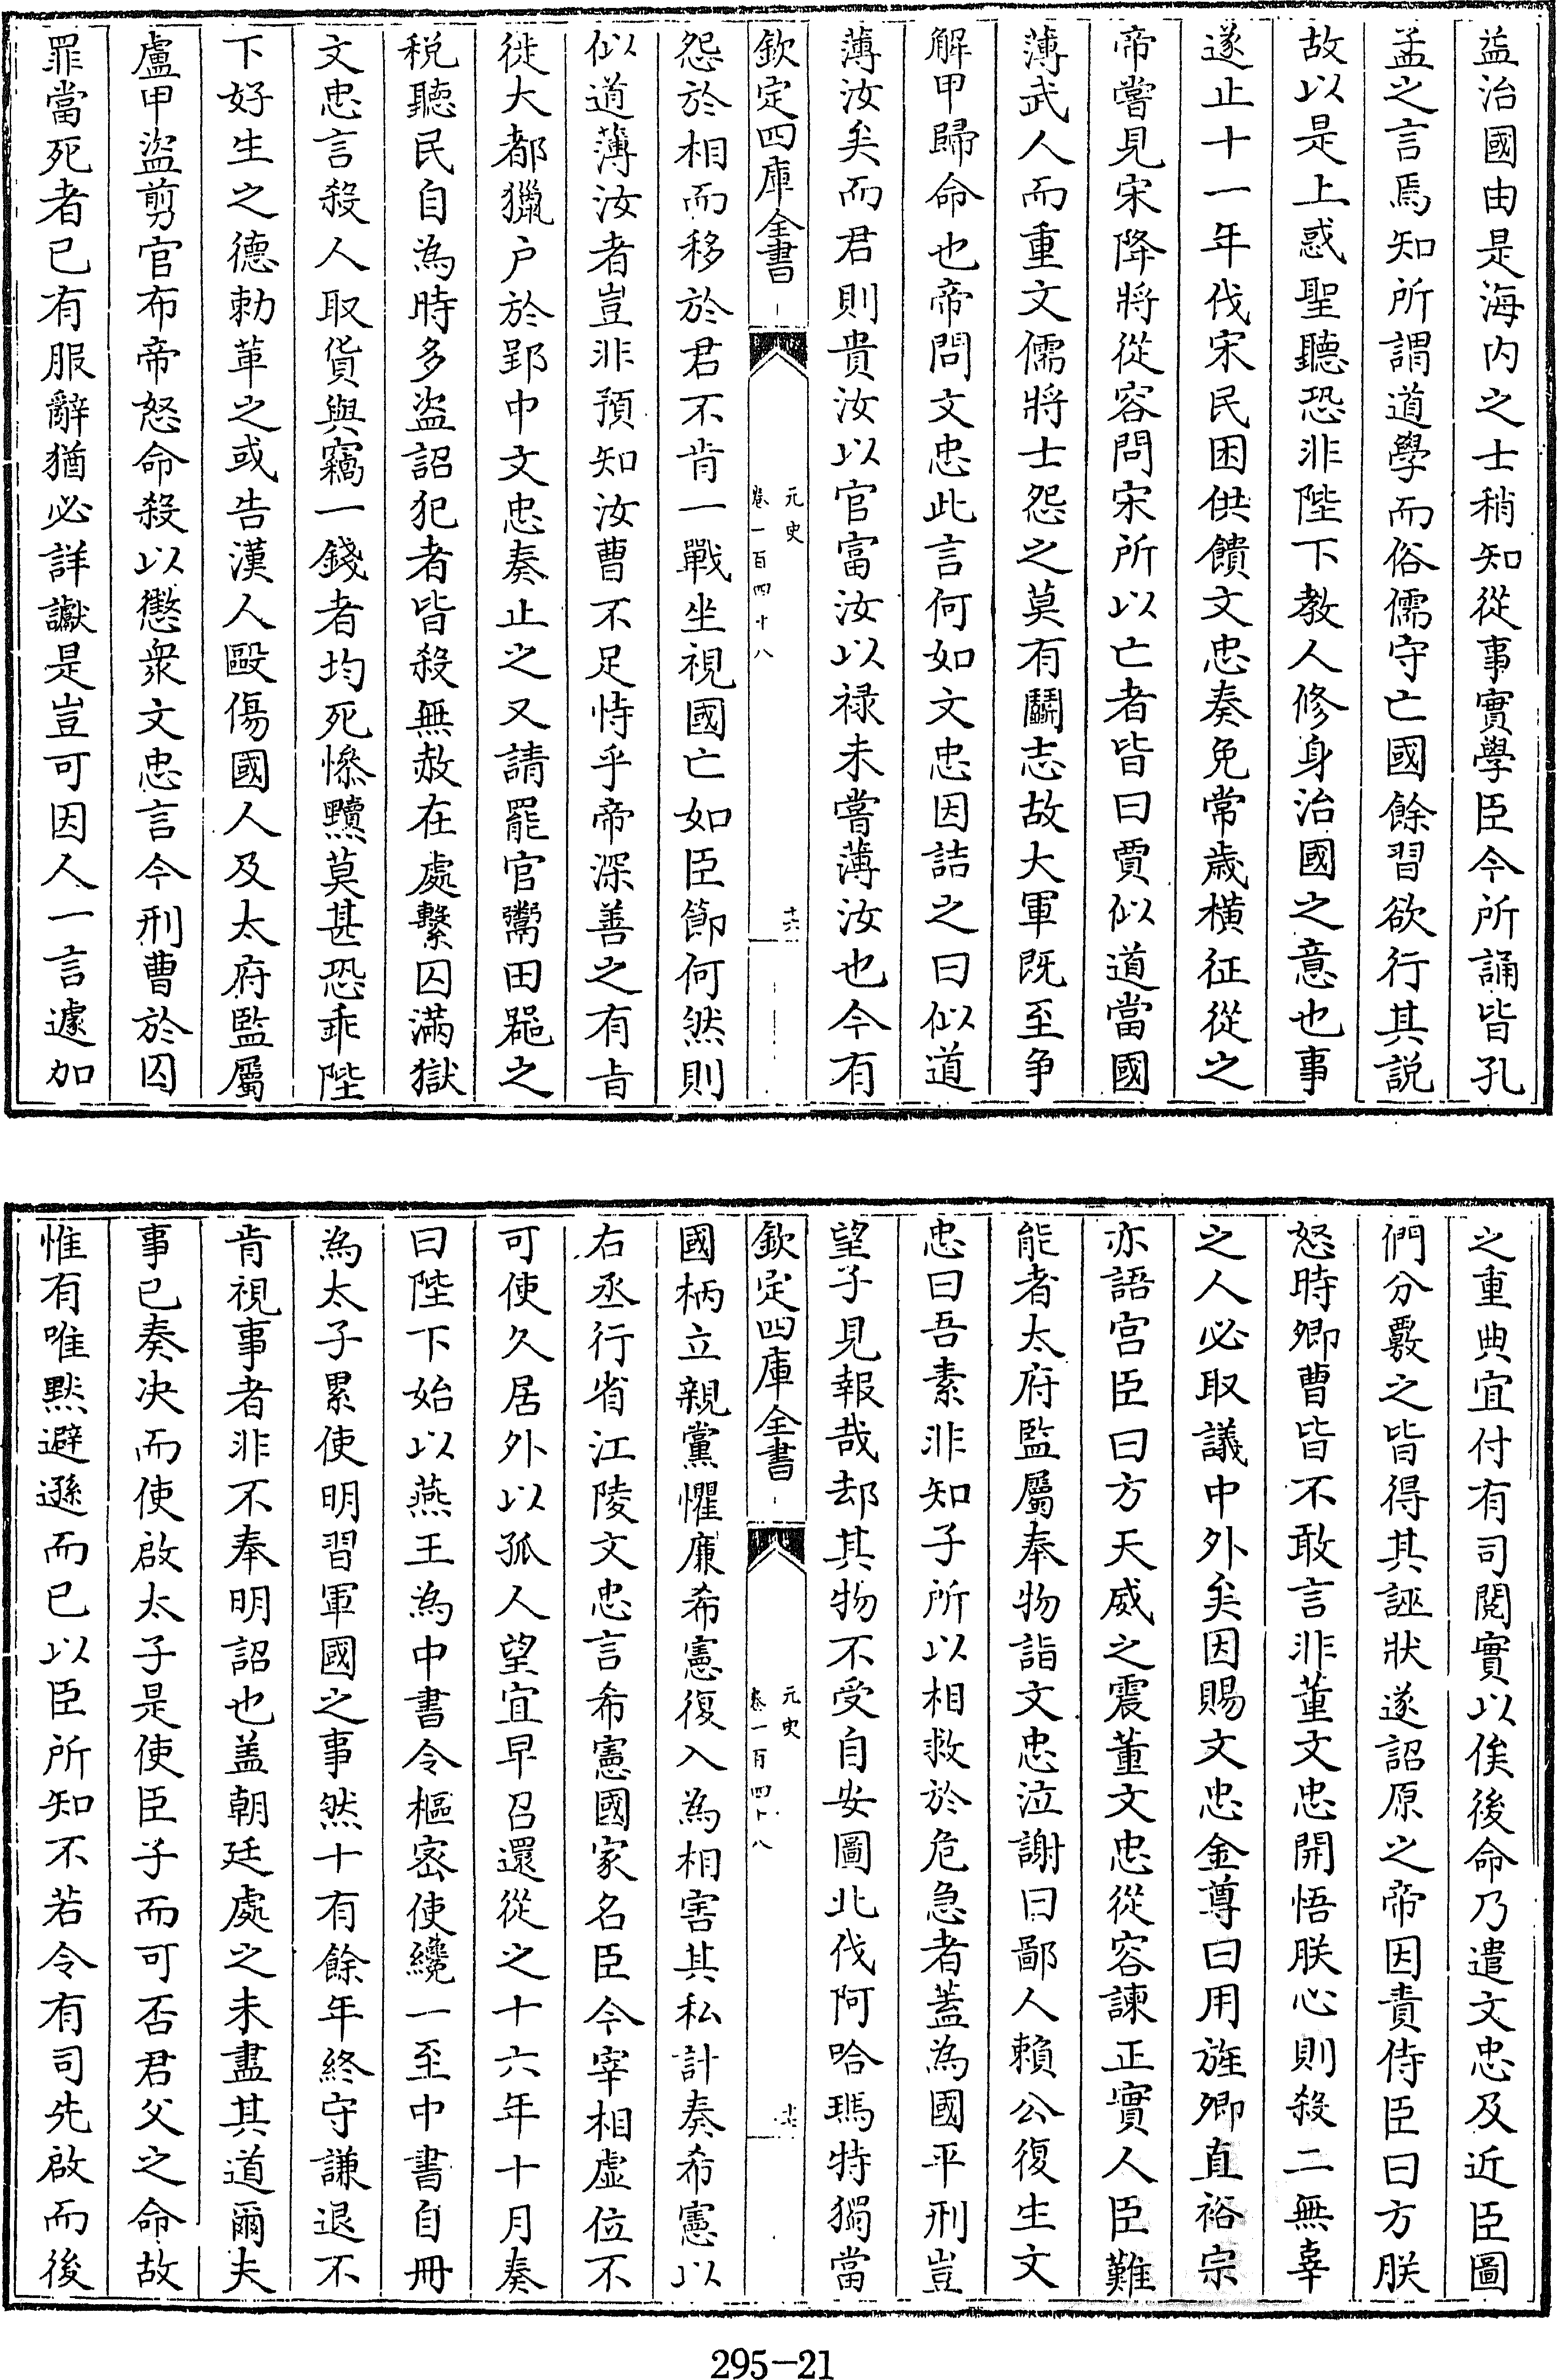 益治國由是海内之士稍知從事實學臣今所誦皆孔
孟之言焉知所謂道學而俗儒守亡國餘習欲行其説
故以是上惑聖聽恐非陛下教人修身治國之意也事
遂止十一年伐宋民困供饋文忠奏免常歲橫征從之
帝嘗見宋降將從容問宋所以亡者皆曰賈似道當國
薄武人而重文儒將士怨之莫有鬬志故大軍既至争
解甲歸命也帝問文忠此言何如文忠因詰之曰似道
薄汝矣而君則貴汝以官富汝以禄未嘗薄汝也今有
欽定四庫全書
元史
卷一百四十八
十六
怨於相而移於君不肯一戰坐視國亡如臣節何然則
似道薄汝者豈非預知汝曹不足恃乎帝深善之有旨
徙大都獵户於郢中文忠奏止之又請罷官鬻田噐之
税聽民自為時多盗詔犯者皆殺無赦在處繫囚滿獄
文忠言殺人取貨與竊一錢者均死慘黷莫甚恐乖陛
下好生之德勅革之或告漢人毆傷國人及太府監屬
盧甲盜剪官布帝怒命殺以懲衆文忠言今刑曹於囚
罪當死者已有服辭猶必詳讞是豈可因人一言遽加
之重典宜付有司閱實以俟後命乃遣文忠及近臣圖
們分覈之皆得其誣狀遂詔原之帝因責侍臣曰方朕
怒時卿曹皆不敢言非董文忠開悟朕心則殺二無辜
之人必取議中外矣因賜文忠金尊曰用旌卿直裕宗
亦語宫臣曰方天威之震董文忠從容諫正實人臣難
能者太府監屬奉物詣文忠泣謝曰鄙人賴公復生文
忠曰吾素非知子所以相救於危急者蓋為國平刑豈
望子見報哉却其物不受自安圖北伐阿哈瑪特獨當
欽定四庫全書
元史
卷一百四十八
國柄立親黨懼廉希憲復入為相害其私計奏希憲以
右丞行省江陵文忠言希憲國家名臣今宰相虛位不
可使久居外以孤人望宜早召還從之十六年十月奏
曰陛下始以燕王為中書令樞密使纔一至中書自冊
為太子累使明習軍國之事然十有餘年終守謙退不
肯視事者非不奉明詔也盖朝廷處之未盡其道爾夫
事已奏决而使啟太子是使臣子而可否君父之命故
惟有唯黙避遜而已以臣所知不若令有司先啟而後
295-21